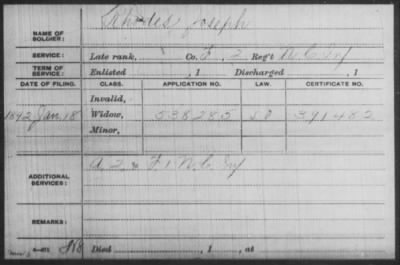 Rhodes Joseph
NAME OF SOLDIER:
SERVICE: Late rank, Co. F, 2 Reg't N.C. Inf
TERM OF SERVICE: Enlisted , 1 Discharged , 1
DATE OF FILING. CLASS. APPLICATION NO. LAW. CERTIFICATE NO.
Invalid,
1892 Jan. 18 Widow, 538285 391482
Minor,
ADDITIONAL SERVICES: N.C. Inf
REMARKS:
Died , 1 , at